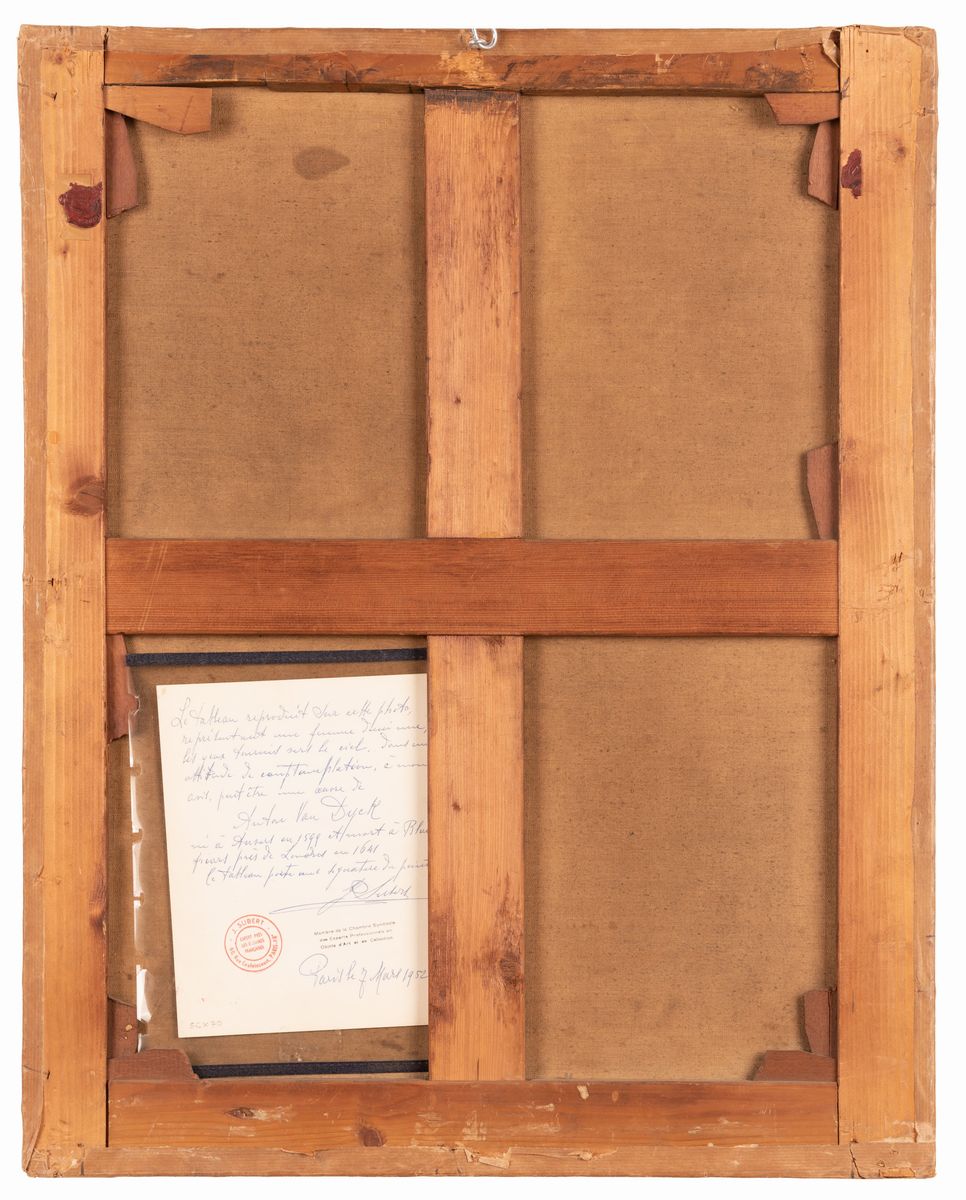 Le tableau reproduit sur cette photo,
représentant une femme demi nue,
les yeux tournés vers le ciel, dans une
attitude de contemplation, à mon
avis, peut être une œuvre de
Anton Van Dyck
né à Anvers en 1599 et mort à
friars près de Londres en 1641
le tableau porte une signature du
Membre de la Chambre Syndicale
des Experts Professionnels en
Objets d'Art et de Collection
J. SUBERT
EXPERT PRÈS
LES DOUANES
FRANÇAISES
Paris le 7 Mars 1952
56x70